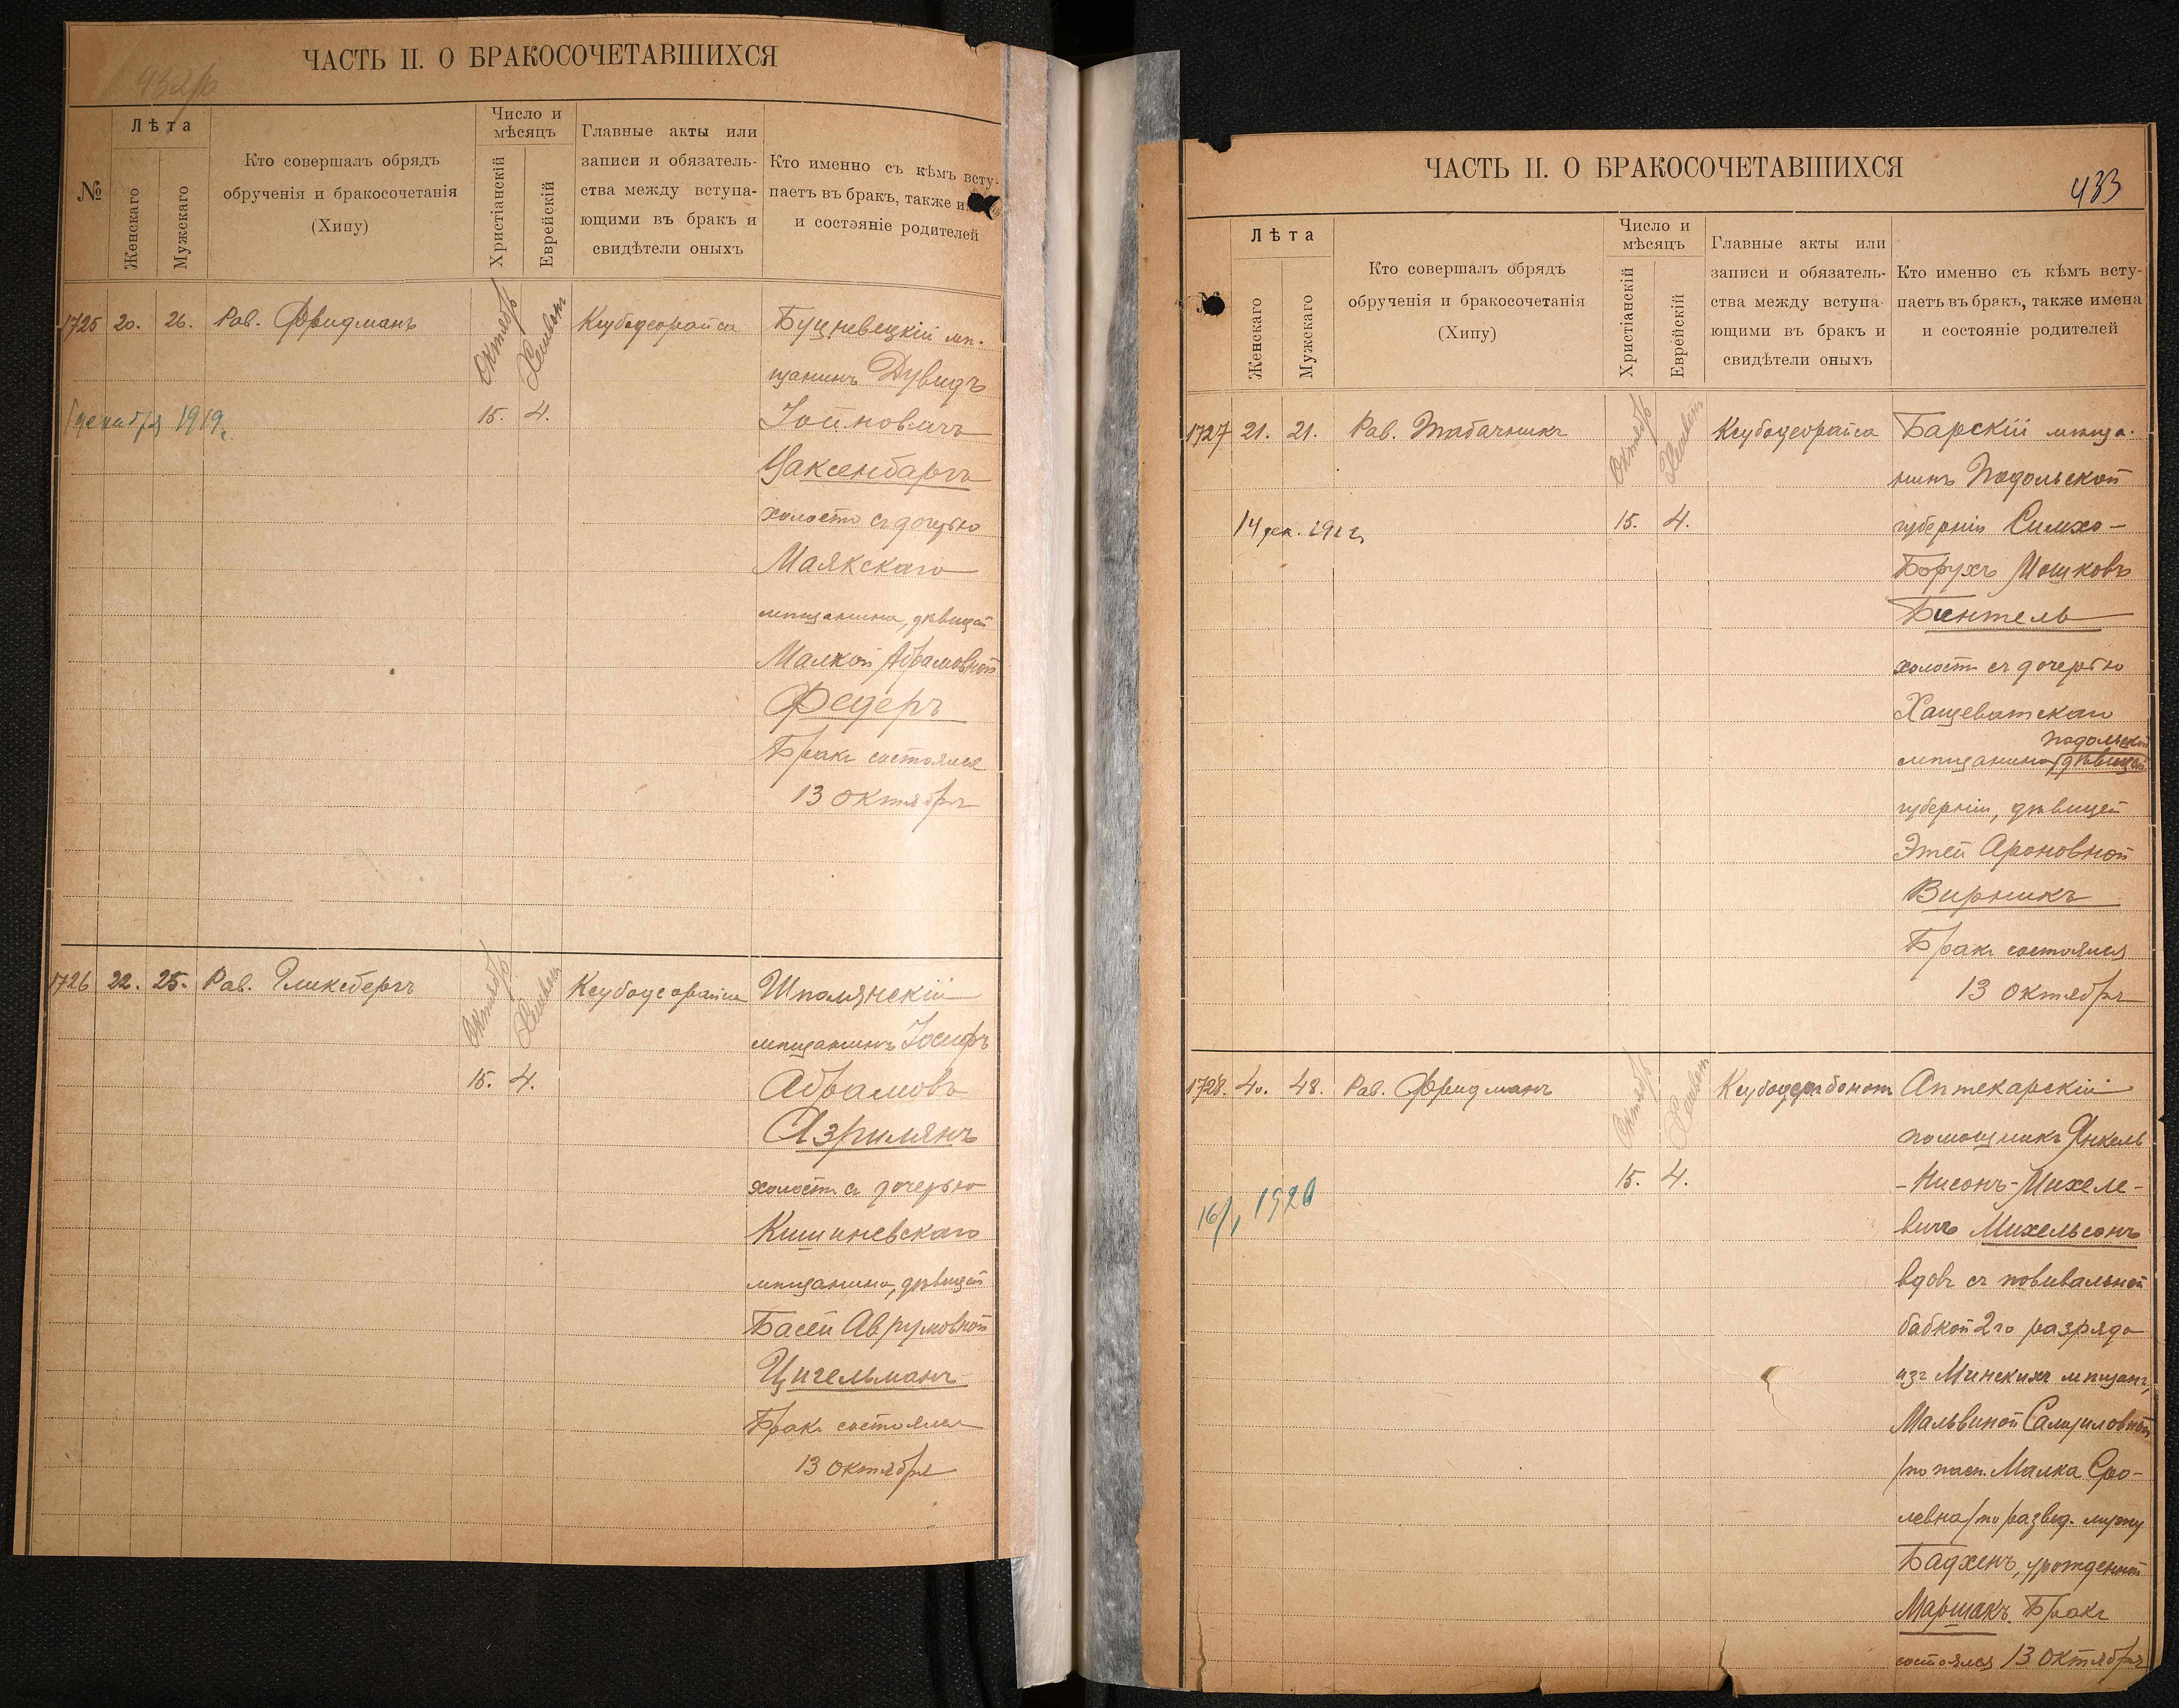 432/об
ЧАСТЬ II. О БРАКОСОЧЕТАВШИХСЯ
№
Лѣта
Женскаго
Мужскаго
Кто совершалъ обрядъ
обрученія и бракосочетанія
(Хипу)
Число и
мѣсяцъ
Христіанскій
Еврейскій
Главные акты или
записи и обязатель-
ства между вступа-
ющими въ бракъ и
свидѣтели оныхъ
Кто именно съ кѣмъ всту-
паетъ въ бракъ, также
и состояніе родителей
1725 20. 26. Рав. Фридманъ
Октябрь Хешвен
15. 4.
декабря 1919г.
Буцневецкій мѣ-
щанинъ Дувидъ
Іойновичъ
Ваксенбаргъ
холостъ съ дочерью
Маякскаго
мѣщанина, дѣвицей
Малкой Абрамовной
Федеръ
Бракъ состоялся
13 октября
1726 22. 25. Рав. Гликсбергъ
Октябрь Хешвен
15. 4.
Шполянскій
мѣщанинъ Іосифъ
Абрамовъ
Азрилянъ
холостъ съ дочерью
Кишиневскаго
мѣщанина, дѣвицей
Басей Аврумовной
Цигельманъ
Бракъ состоялся
13 октября
433
ЧАСТЬ II. О БРАКОСОЧЕТАВШИХСЯ
№
Лѣта
Женскаго
Мужскаго
Кто совершалъ обрядъ
обрученія и бракосочетанія
(Хипу)
Число и
мѣсяцъ
Христіанскій
Еврейскій
Главные акты или
записи и обязатель-
ства между вступа-
ющими въ бракъ и
свидѣтели оныхъ
Кто именно съ кѣмъ всту-
паетъ въ бракъ, также имена
и состояніе родителей
1727 21. 21. Рав. Табачникъ
Октябрь Хешвен
15. 4.
14 дек.
Барскій мѣща-
нинъ Подольской
губерніи Симхо-
Борухъ Мошковъ
Бентель
холостъ съ дочерью
Хащеватскаго
Подольской
мѣщанина дѣвицей
губерніи, дѣвицей
Этей Ароновной
Вирникъ
Бракъ состоялся
13 октября
1728. 40. 48. Рав. Фридманъ
Октябрь Хешвен
15. 4.
16/1 1920
Аптекарскій
помощникъ Янкель
-Нисонъ-Михеле-
вичъ Михельсонъ
вдовъ съ повивальной
бабкой 2го разряда
изъ Минскихъ мѣщанъ,
Мальвиной Самуиловной
/по пасп. Малка Сро-
левна/ по развед. мужу
Бадхенъ, урожденной
Маршакъ. Бракъ
состоялся 13 октября